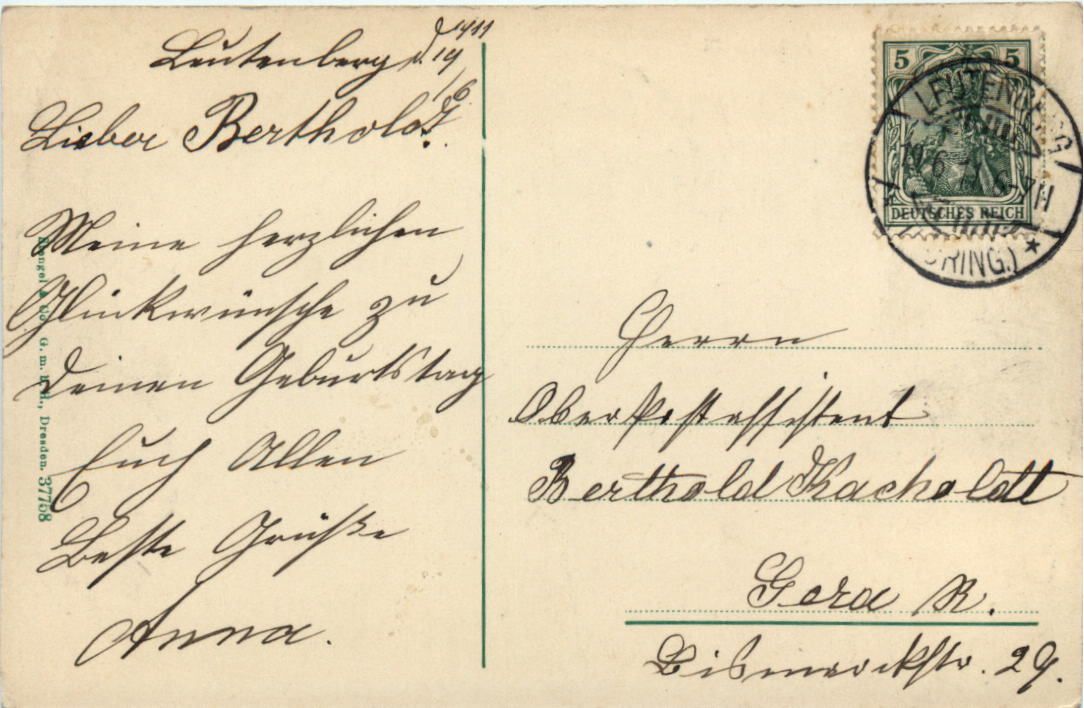 Leutenberg, d. 19/6. 1911
Lieber Berthold!
Meine herzlichen
Glückwünsche zu
Deinen Geburtstag
Euch Allen
Beste Grüße
Anna.
Stengel & Co., G. m. b. H., Dresden. 37768
5 5
DEUTSCHES REICH
LEUTENBERG
19.6.11.6-7N
(THÜRING.)
Herrn
Oberpostassistent
Berthold Kacholdt
Gera R.
Bismarckstr. 29.